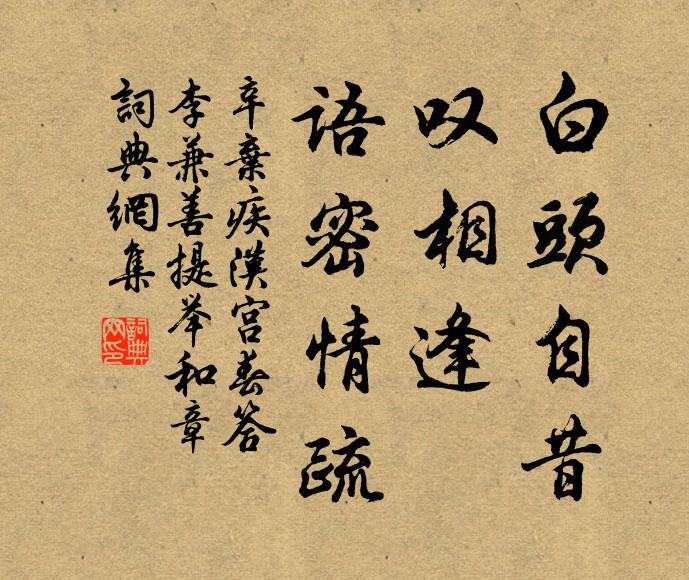 白頭自昔
叹相逢
语密情疏
辛棄疾漢宫春答
李兼善提举和章
詞典網集
詞典网印